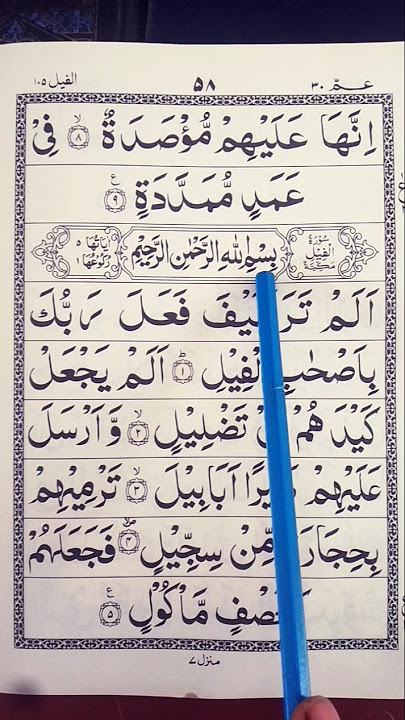 الفيل ١٠٥
٥٨
عمّ ٣٠
اِنَّهَا عَلَيْهِمْ مُّؤْصَدَةٌ ۙ﴿٨﴾ فِيْ
عَمَدٍ مُّمَدَّدَةٍ ﴿٩﴾
سُوْرَةُ الْفِيْلِ مَكِّيَّةٌ
بِسْمِ اللّٰهِ الرَّحْمٰنِ الرَّحِيْمِ
اٰيَاتُهَا ٥ رُكُوْعُهَا ١
اَلَمْ تَرَ فَعَلَ رَبُّكَ
بِاَصْحٰبِ الْفِيْلِ ؕ﴿١﴾ اَلَمْ يَجْعَلْ
كَيْدَهُمْ تَضْلِيْلٍ ۙ﴿٢﴾ وَّاَرْسَلَ
عَلَيْهِمْ اَبَابِيْلَ ۙ﴿٣﴾ تَرْمِيْهِمْ
مِّنْ سِجِّيْلٍ ﴿٤﴾ فَجَعَلَهُمْ
مَّاْكُوْلٍ ﴿٥﴾
منزل ٧